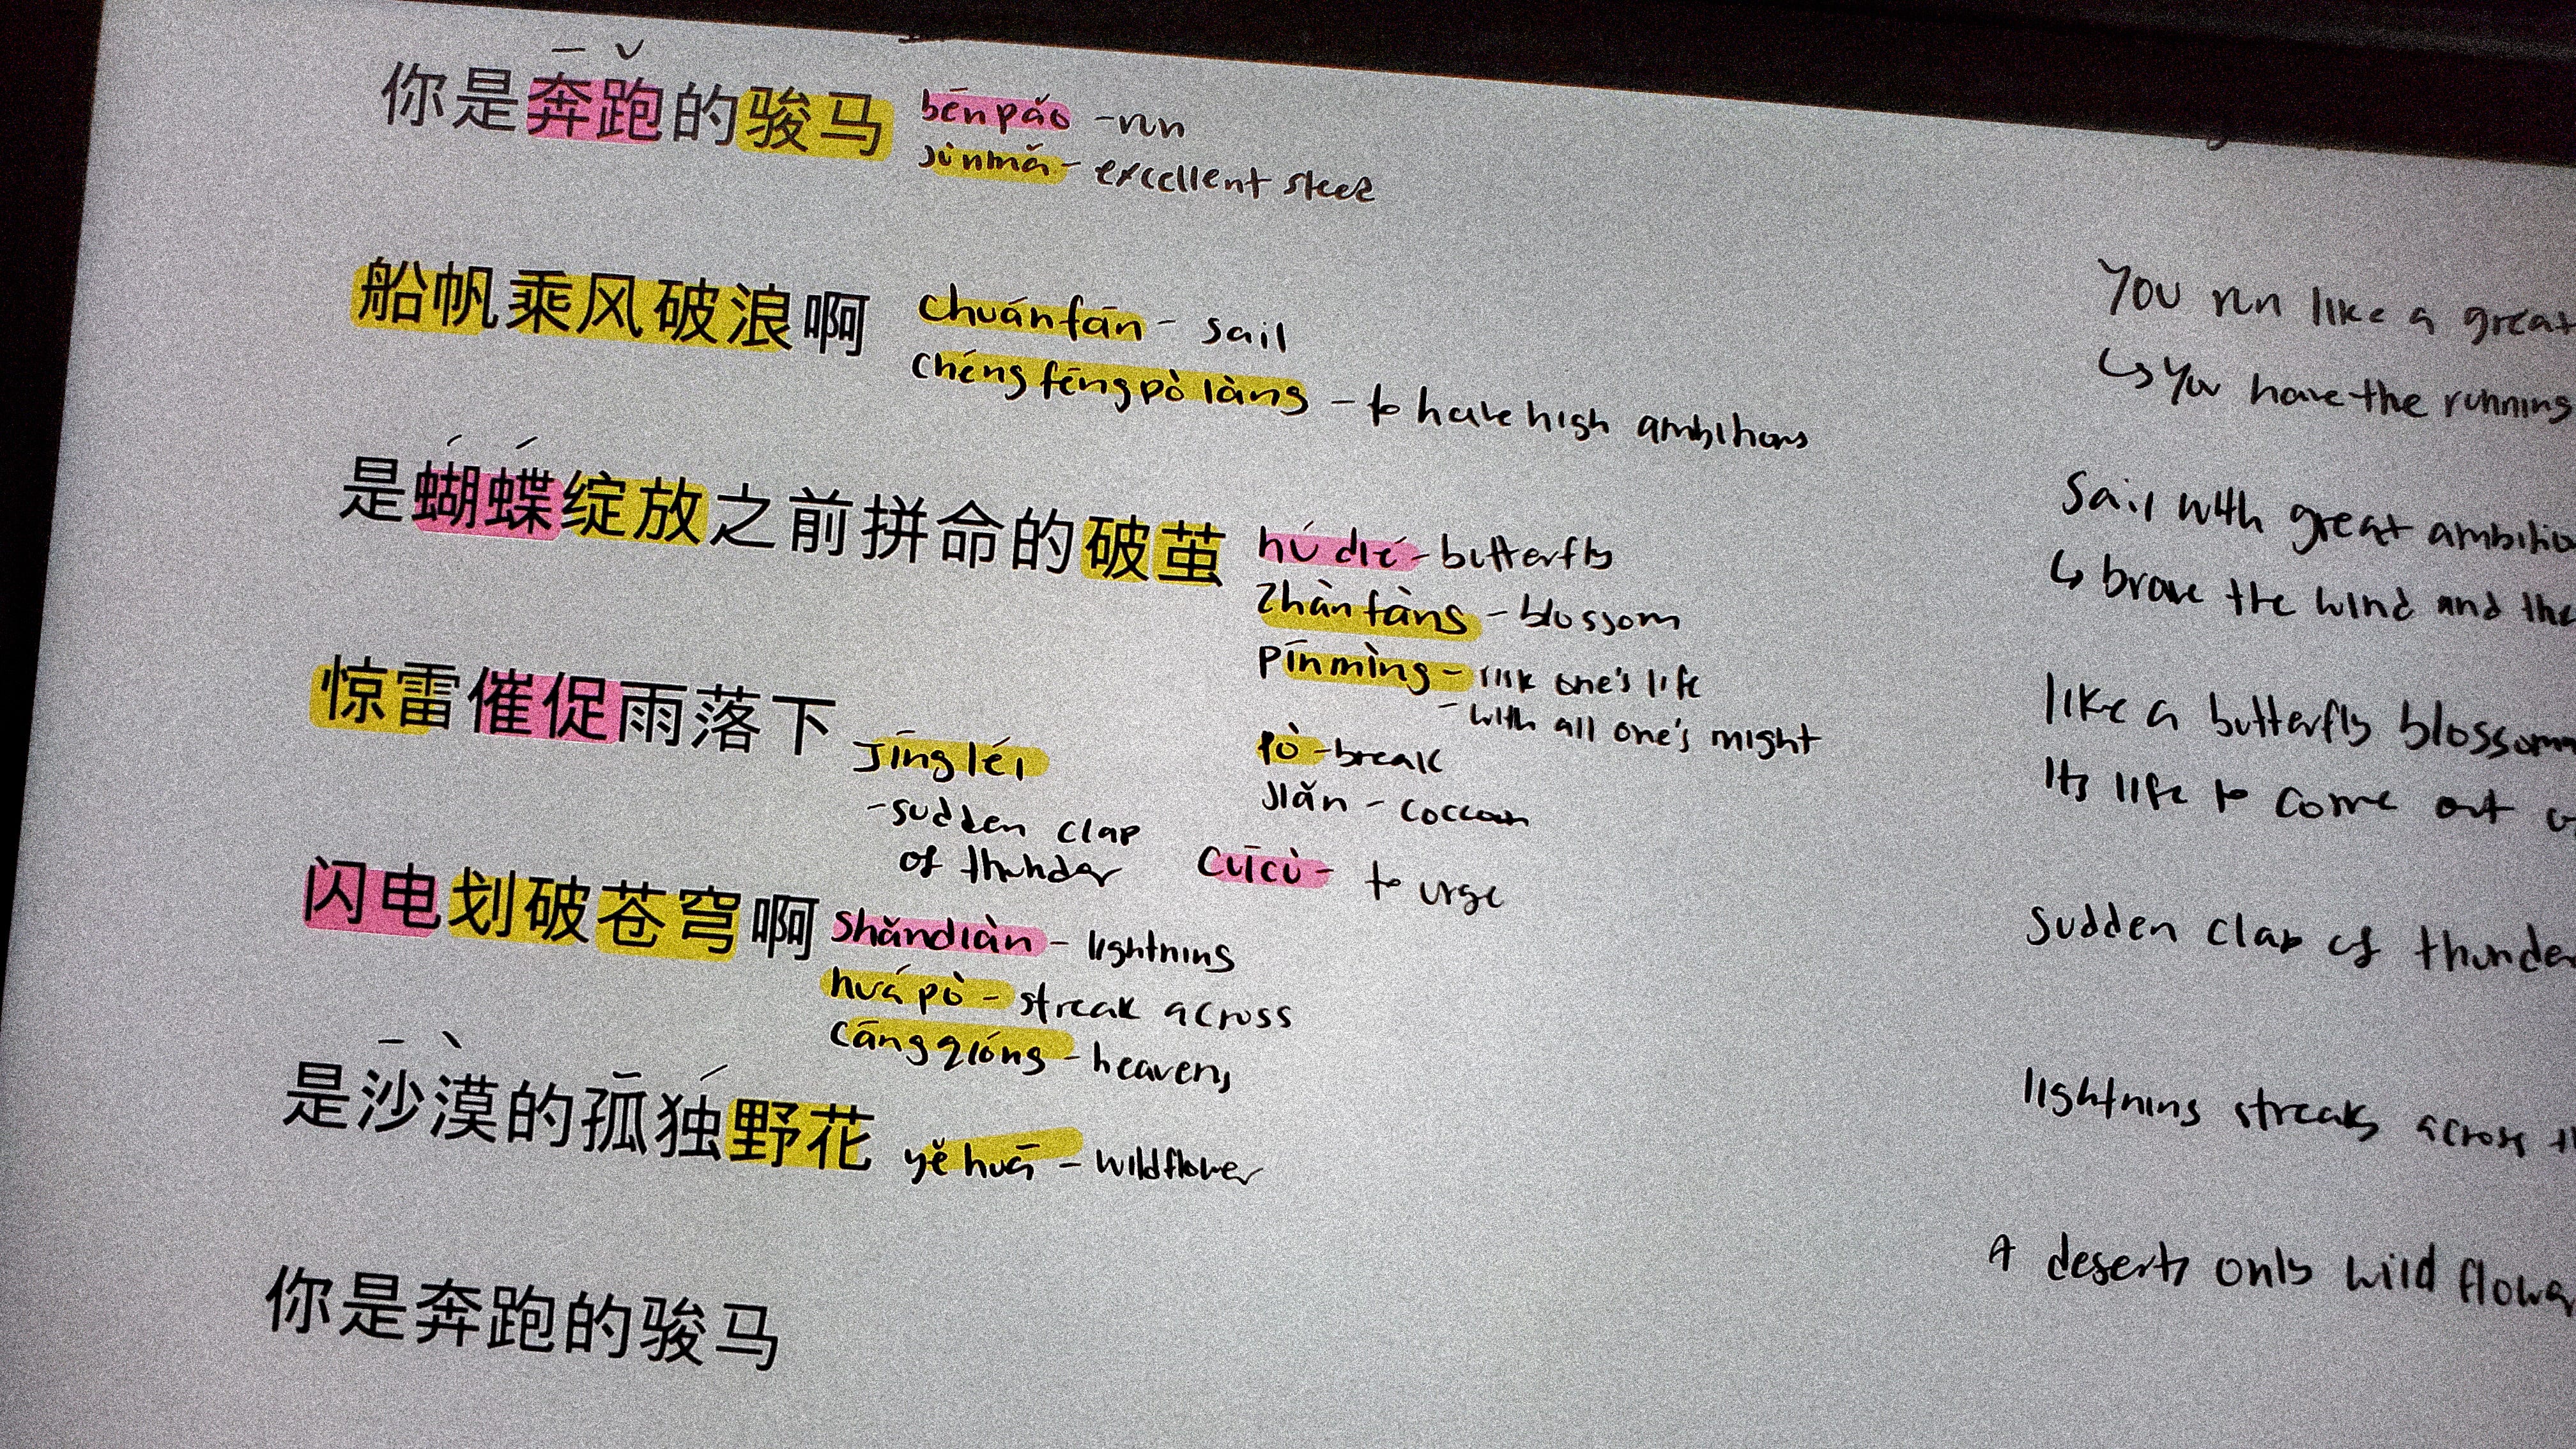 你是奔跑的骏马
bēn pǎo - run
jùnmǎ - excellent steed
船帆乘风破浪啊
chuánfān - sail
chéng fēng pò làng - to have high ambitions
You run like a great
↳ You have the running
是蝴蝶绽放之前拼命的破茧
hú dié - butterfly
zhàn fàng - blossom
pīn mìng - risk one's life
- with all one's might
pò - break
Jiǎn - coccoon
Sail with great
↳ brave the wind and the
惊雷催促雨落下
Jīng léi
- sudden clap
of thunder
cuīcù - to urge
like a butterfly
Its life to come out
闪电划破苍穹啊
shǎndiàn - lightning
huá pò - streak across
cāng qióng - heavens
sudden clap of
是沙漠的孤独野花
yě huā - wildflower
lightning streaks across
你是奔跑的骏马
A deserts only wild